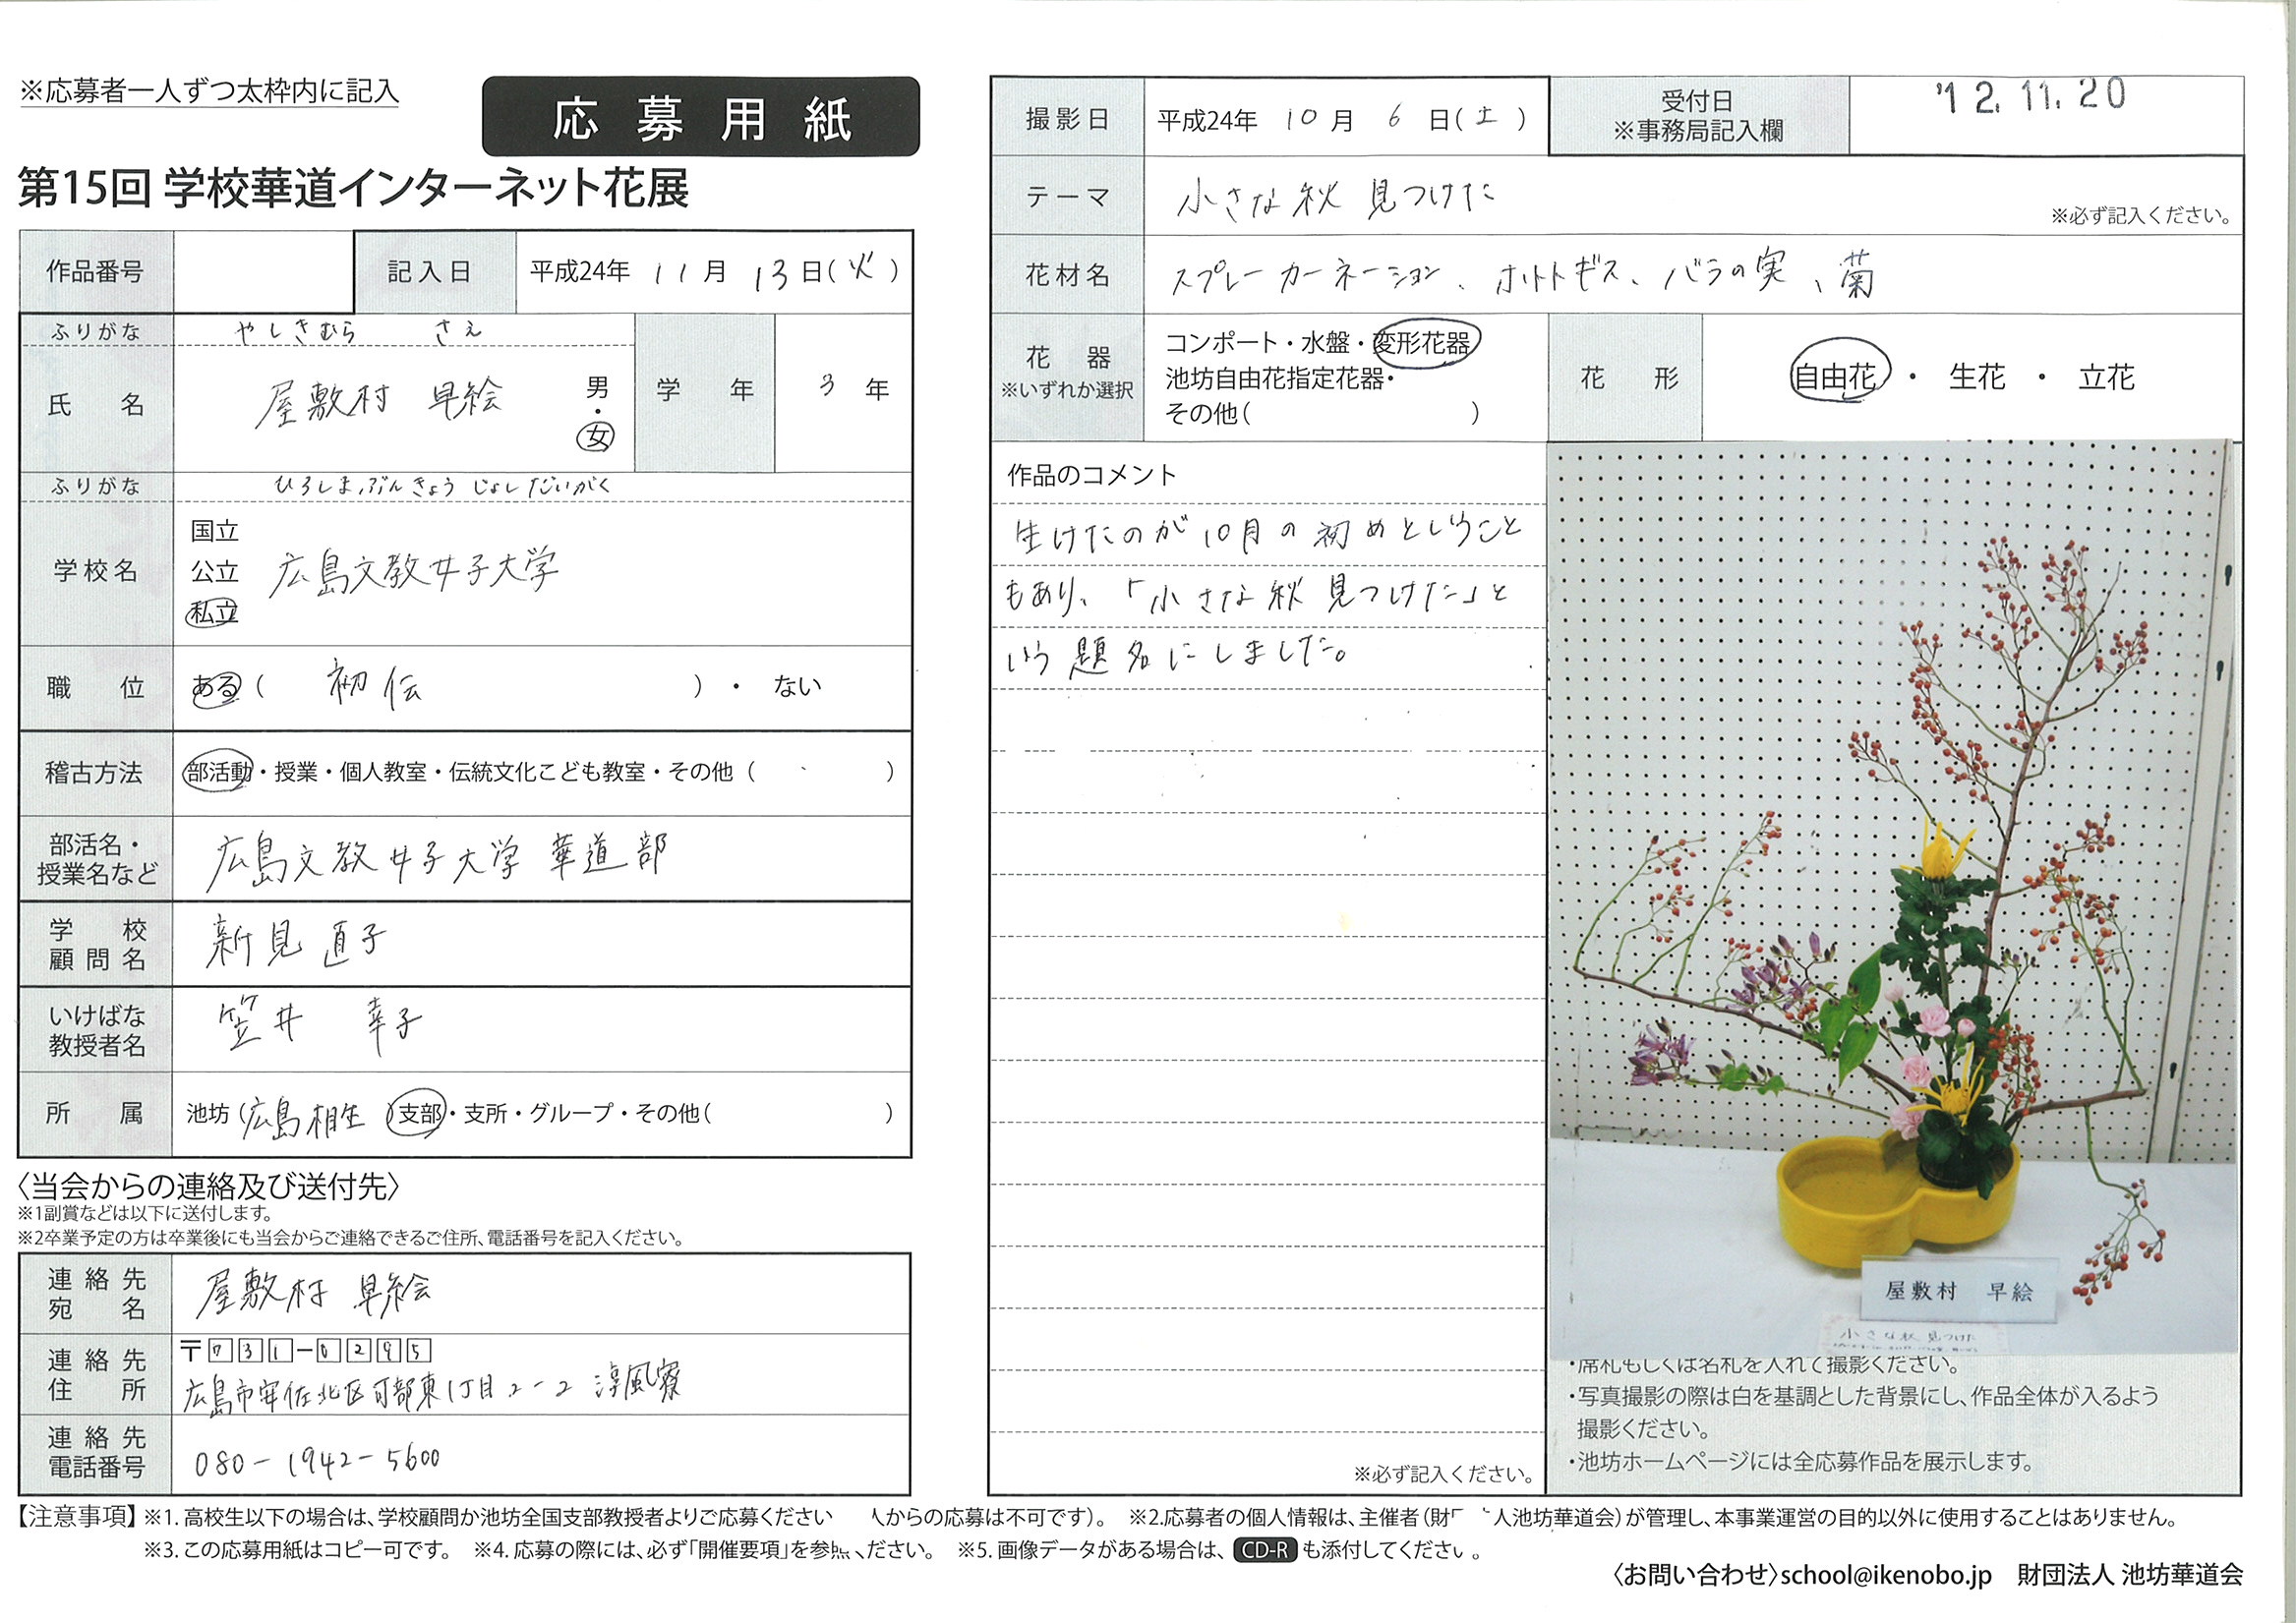 ※応募者一人ずつ太枠内に記入
応募用紙
第15回 学校華道インターネット花展
作品番号
記入日 平成24年 11月 13日(火)
ふりがな やしきむら さえ
氏名 屋敷村 早絵 男・女
学年 3年
ふりがな ひろしまぶんきょうじょしだいがく
学校名 国立 公立 私立 広島文教女子大学
職位 ある( 初伝 )・ない
稽古方法 部活動・授業・個人教室・伝統文化こども教室・その他( )
部活名・授業名など 広島文教女子大学 華道部
学校顧問名 新見 直子
いけばな教授者名 笠井 幸子
所属 池坊(広島相生)支部・支所・グループ・その他( )
〈当会からの連絡及び送付先〉
※1副賞などは以下に送付します。
※2卒業予定の方は卒業後にも当会からご連絡できるご住所、電話番号を記入ください。
連絡先宛名 屋敷村 早絵
連絡先住所 〒731-0295
広島市安佐北区可部東1丁目2-2 淳風寮
連絡先電話番号 080-1942-5600
撮影日 平成24年 10月 6日(土)
受付日 ※事務局記入欄 '12.11.20
テーマ 小さな秋 見つけた
※必ず記入ください。
花材名 スプレーカーネーション、ホトトギス、バラの実、菊
花器 ※いずれか選択
コンポート・水盤・変形花器
池坊自由花指定花器・
その他( )
花形 自由花・生花・立花
作品のコメント
生けたのが10月の初めということ
もあり、「小さな秋 見つけた」と
いう題名にしました。
※必ず記入ください。
屋敷村 早絵
小さな秋 見つけた
・席札もしくは名札を入れて撮影ください。
・写真撮影の際は白を基調とした背景にし、作品全体が入るよう
撮影ください。
・池坊ホームページには全応募作品を展示します。
【注意事項】※1. 高校生以下の場合は、学校顧問か池坊全国支部教授者よりご応募ください 人からの応募は不可です)。 ※2.応募者の個人情報は、主催者(財 人池坊華道会)が管理し、本事業運営の目的以外に使用することはありません。
※3. この応募用紙はコピー可です。 ※4. 応募の際には、必ず「開催要項」を参照ください。 ※5. 画像データがある場合は、CD-Rも添付してください。
〈お問い合わせ〉school@ikenobo.jp 財団法人 池坊華道会